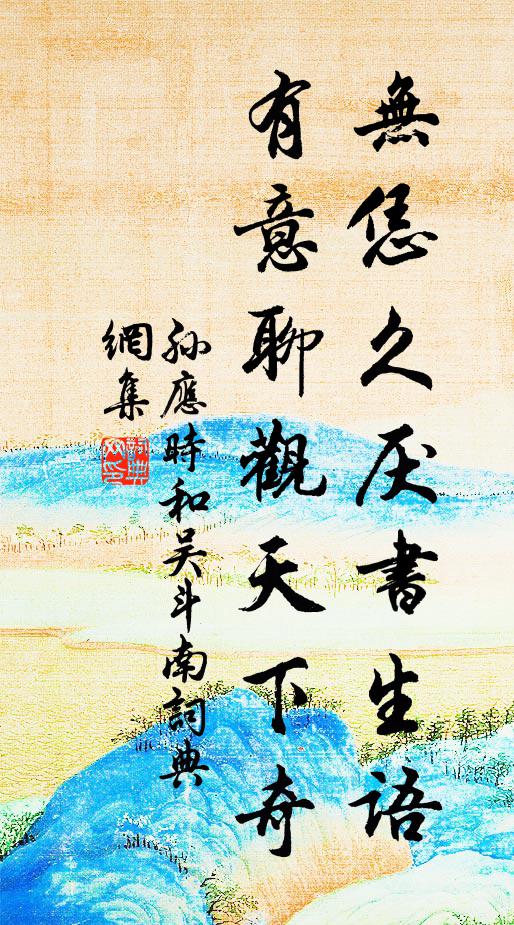 無恁久厌書生語
有意聊觀天下奇
孙應時和吴斗南詞典
網集